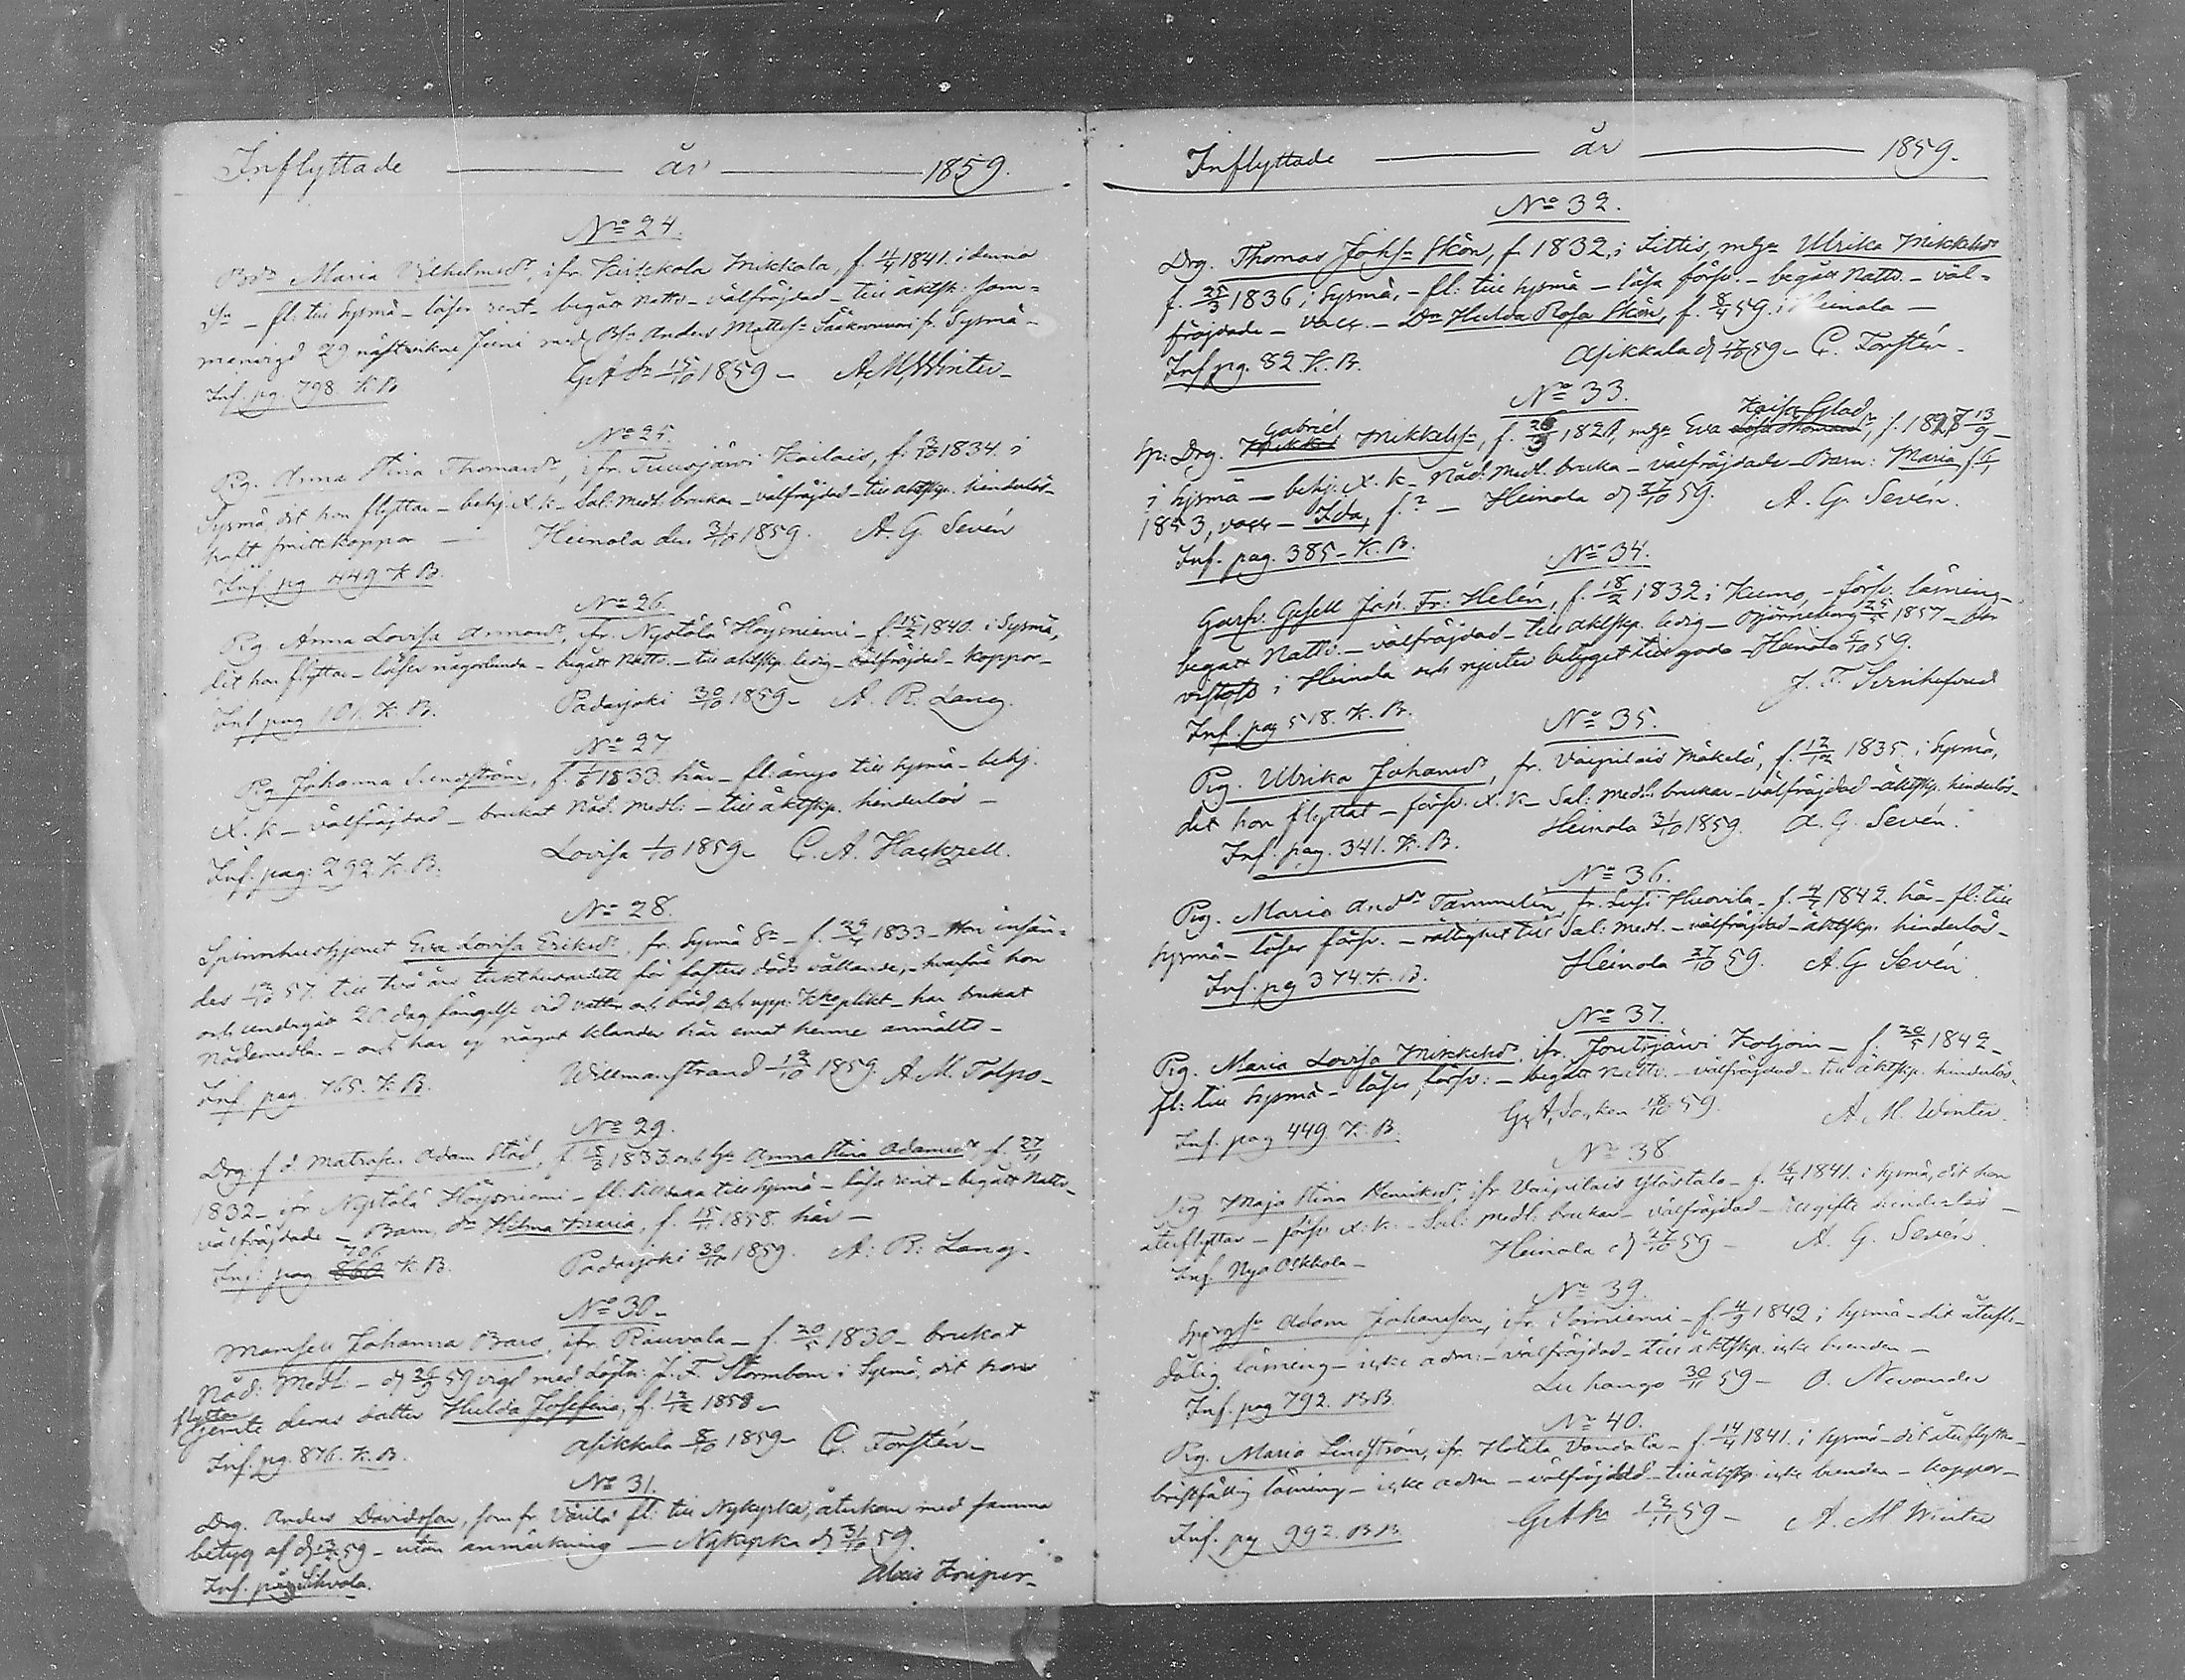 Inflyttade — år — 1859.
No 24.
Maria Vilhelmsdr, ifr. Kirkkola Mikkola, f. 4/4 1841. i denna
Sn – fl: till Sysmä – läser rent – begått Nattv – välfräjdad – till äktsk: sam-
manvigd 29 nästvikne Juni med Bs. Anders Mattss. fr. Sysmä –
15/10 1859 – A. M. Winter –
Inf. pg. 798. K.B
No 25.
Pig. Anna Stina Thomasdr, ifr. Tuusjärvi Kailais, f. 1834. i
Sysmä, dit hon flyttar – behj. X. k – Sal: Medl. brukar – välfräjdad – till äktskp. hinderlös –
haft smittkoppor — Heinola den 31/10 1859. A. G. Sevén
Inf. pg 449 K B.
No 26.
Pig. Anna Lovisa Annasdr, ifr. Nystölä Höysniemi – f. 15/2 1840. i Sysmä,
dit hon flyttar – läser någorlunda – begått Nattv. – till äktskp. ledig – välfräjdad – koppor –
Inf. pag 101. K. B. Padasjoki 30/10 1859 – A. R. Lang.
No 27
Pig Johanna Lindström, f. 1833. här – fl: ånyo till Sysmä – behj.
X. k – välfräjdad – brukat Nåd. Medl: – till äktskp. hinderlös –
Inf. pag: 292. K. B. Lovisa 1/10 1859 – C. A. Hackzell.
No 28.
Spinnhushjonet Eva Lovisa Eriksdr. fr. Sysmä Sn – f. 1833 – Hon insän-
des 57. till två års tukthusarbete för fosters döds vållande, – hvarföre hon
och undergår 20. dag. fängelse vid vatten och bröd och upp. Kko plikt – har brukat
Nådemedlen – och har ej något klander här emot henne anmälts –
Inf. pag. 765. K. B. Willmanstrand 1859. A. M. Tolpo –
No 29.
Drg. f. d. Matrosen Adam Ståd, f. 1833. och hu Anna Stina Adamsdr f. 27/11
1832 – ifr Nystölä Höysniemi – fl: tillbaka till Sysmä – läsa rent – begått Nattv –
välfräjdade – Barn, dr Helma Maria, f. 15/11 1858. här –
706
Inf: pag 860 K. B. Padasjoki 30/10 1859. A: R: Lang.
No 30 –
Mamsell Johanna Bars, ifr. Rauvala – f. 20/5 1830 – brukat
Nåd: Medl – d 59 vigd med J. F. Stormbom i Sysmä, dit hon
flyttar
jemte deras dotter Hulda Josefina, f. 1858 –
Inf. pg. 876. K. B. Asikkala 8/10 1859 – C. Forstén –
No 31.
Drg. Anders Davidsson, som fr. Värilä fl: till Nykyrka, återkom med samma
betyg af d 59 – utan anmärkning — Nykyrka d 31/10 59.
Inf. Alexis
Inflyttade — år — 1859.
No 32.
Drg. Thomas Johss. Skön, f. 1832, i Littis, m. hu Ulrika Mikkelsdr
f. 25/3 1836, i Sysmä, – fl: till Sysmä – läsa försv. – begått Nattv. – väl-
fräjdade – vacc. – Dr Hulda Rosa Skön, f. 8/4 59. i Heinola –
Inf pg. 82. K. B. Asikkala d 59 – C. Forstén –
No 33.
Gabriel Kaisa Glad
Sp: Drg. Mikkel Mikkelss., f. 1821, m. hu Eva f. 1827 13/9 –
i Sysmä – behj. X. k – Nåd: Medl. bruka – välfräjdade – Barn: Maria f.
1853, vacc – Ida, f. ? – Heinola d 27/10 59. A. G. Sevén.
Inf. pag. 385 – K. B.
No 34.
Garfv. Gesell Joh. Fr: Helén, f. 18/2 1832 i Kumo, – försv. läsning –
begått Nattv. – välfräjdad – till äktskp. ledig – Björneborg 25/5 1857 – har
vistats i Heinola och njuter betyget till godo – Heinola 59.
J. F.
Inf. pag 518. K. B.
No 35.
Pig. Ulrika Johansdr, fr. Vaipilais Mäkelä, f. 12/12 1835 i Sysmä,
dit hon flyttat – försv. X. k – Sal: Medl. brukar – välfräjdad – äktskp. hinderlös –
Heinola 31/10 1859. A. G. Sevén.
Inf. pag. 341. K. B.
No 36.
Pig. Maria Andsdr Tammelin, fr. Lusi Huovila – f. 1842. här – fl: till
Sysmä – läser försv. – rättighet till Sal: Medl. – välfräjdad – äktskp. hinderlös –
Heinola 27/10 59. A. G Sevén
Inf. pg 374. K. B.
No 37.
Pig. Maria Lovisa Mikkelsdr. ifr. Joutsjärvi Koljoin – f. 20/5 1842 –
fl: till Sysmä – läser försv: – begått Nattv. – välfräjdad – till äktskp. hinderlös –
18/10 59. A. M. Winter.
Inf. pag 449. K. B.
No 38
Pig Maja Stina Henriksdr, ifr Vaipilais Yläståla – f. 1841. i Sysmä, dit hon
återflyttar – försv. X. k. – Sal: Medl: brukar – välfräjdad – till gifte hinderlös –
Heinola d 27/10 59 – A. G. Sevén.
Inf. Nya Oikkola –
No 39.
Adam Johansson, ifr. – f. 4/9 1842 i Sysmä – dit återfl –
dålig läsning – icke adm: – välfräjdad – till äktskp. icke bunden –
Luhango 30/11 59 – O. Nevander
Inf. pag 792. B.B.
No 40.
Pig. Maria Lindström, ifr. Hotila – f. 14/4 1841. i Sysmä – dit återflytt –
bristfällig läsning – icke adm – välfräjdad – till äktskp. icke bunden – koppor –
59 – A. M Winter
Inf. pg 992. B B.